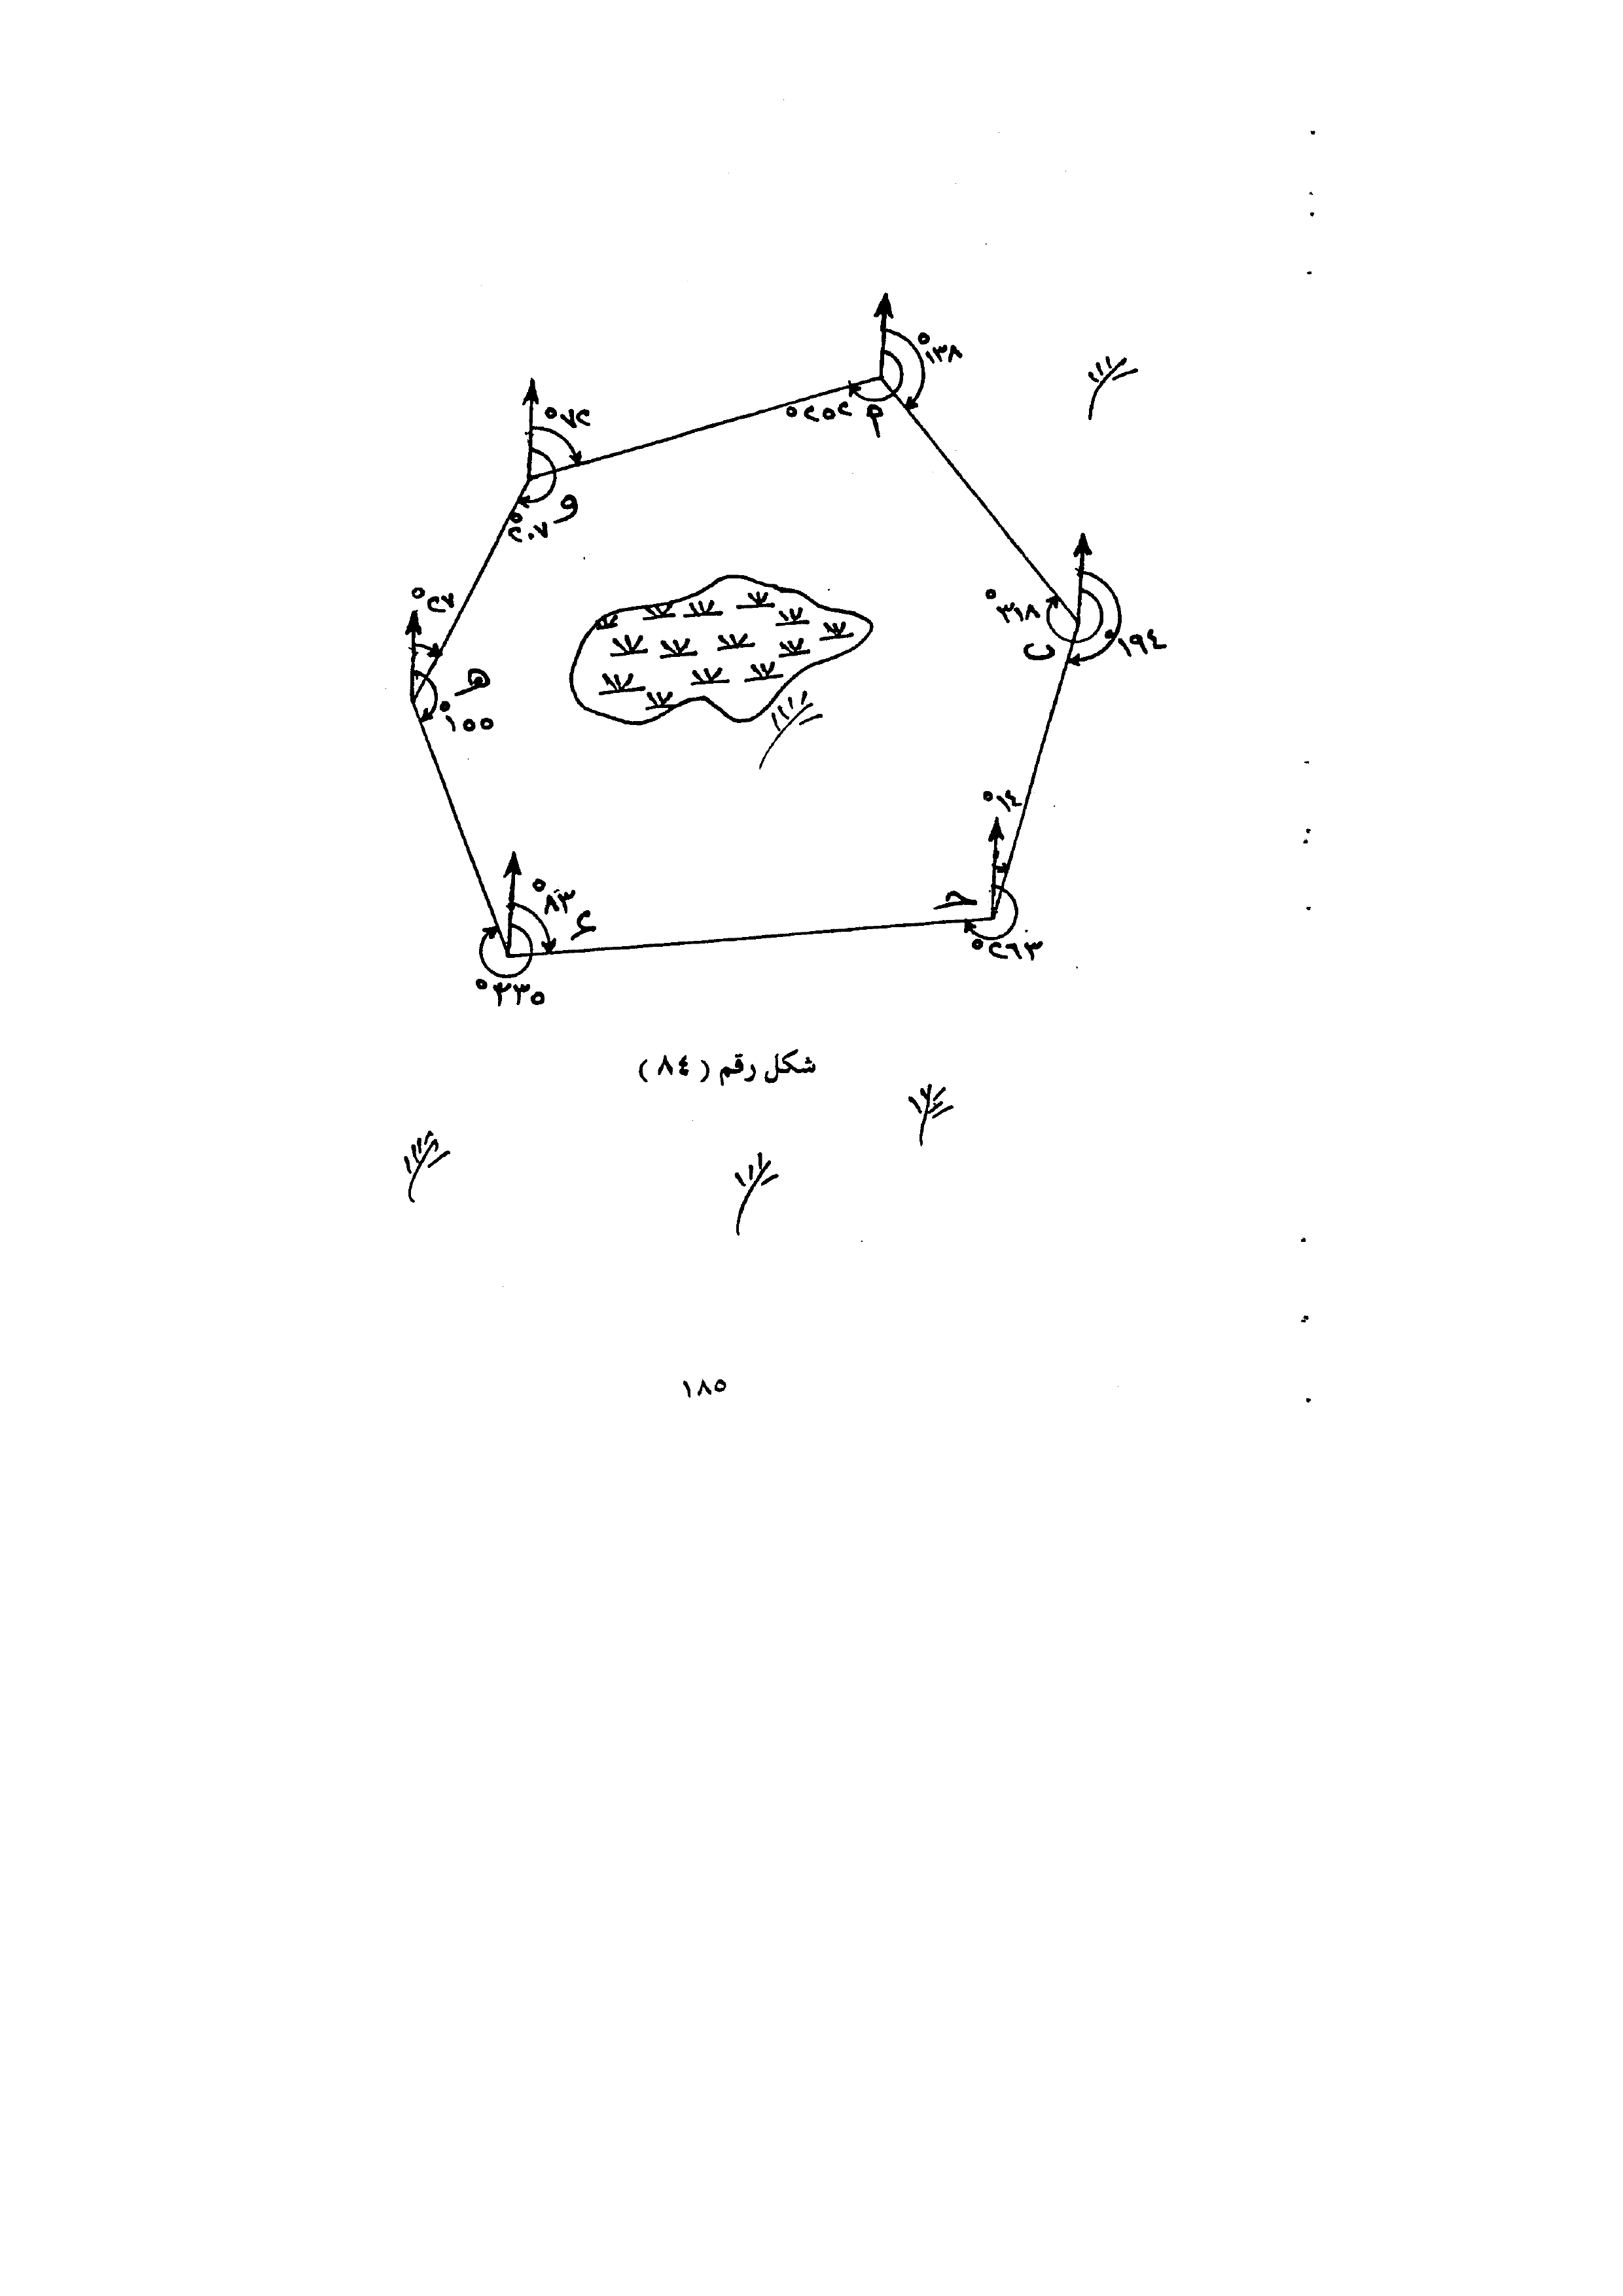 °١٣٨
°٢٥٢
أ
°٧٢
و
°٢٠٧
°٢٧
هـ
°١٥٥
°٣١٨
ب
°١٩٤
°١٤
جـ
°٢٦٣
°٨٣
ء
°٣٣٥
شكل رقم ( ٨٤ )
١٨٥